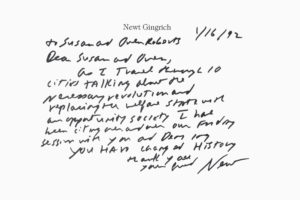 Newt Gingrich
1/16/92
to Susan and Owen Roberts
Dear Susan and Owen,
As I travel through 10
cities talking about the
necessary revolution and
replacing the welfare state with
an opportunity society I have
been citing over and over our Friday
session with you and
YOU HAVE changed History
Thank you
your friend
Newt